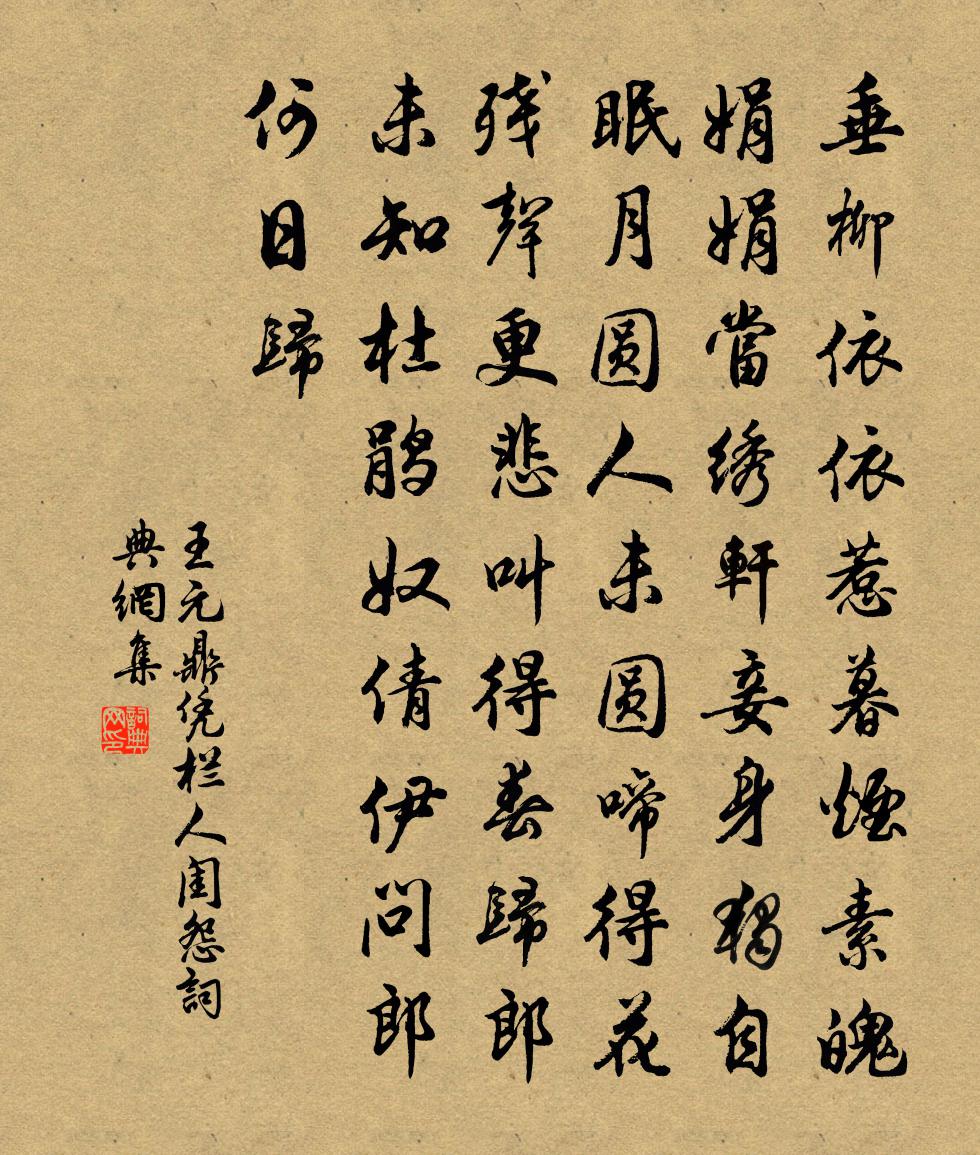 垂柳依依惹暮煙素魄
娟娟當绣軒妾身獨自
眠月圆人未圆啼得花
残聲更悲叫得春歸郎
未知杜鹃奴倩伊问郎
何日歸
王元鼎凭栏人闺怨詞
典網集
詞典
网印